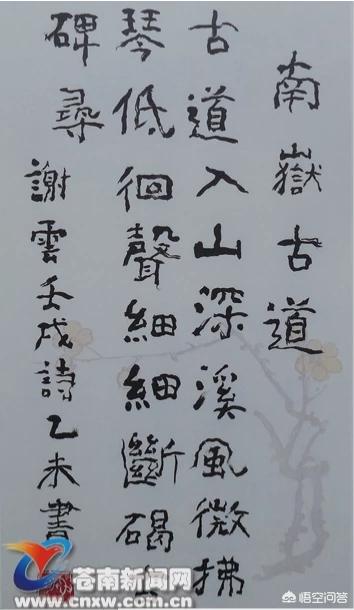 南嶽古道
古道入山深溪風微拂
琴低徊聲細細斷碣
碑尋
謝雲壬戌詩乙未書
苍南新闻网
www.cnxw.com
悟空问答